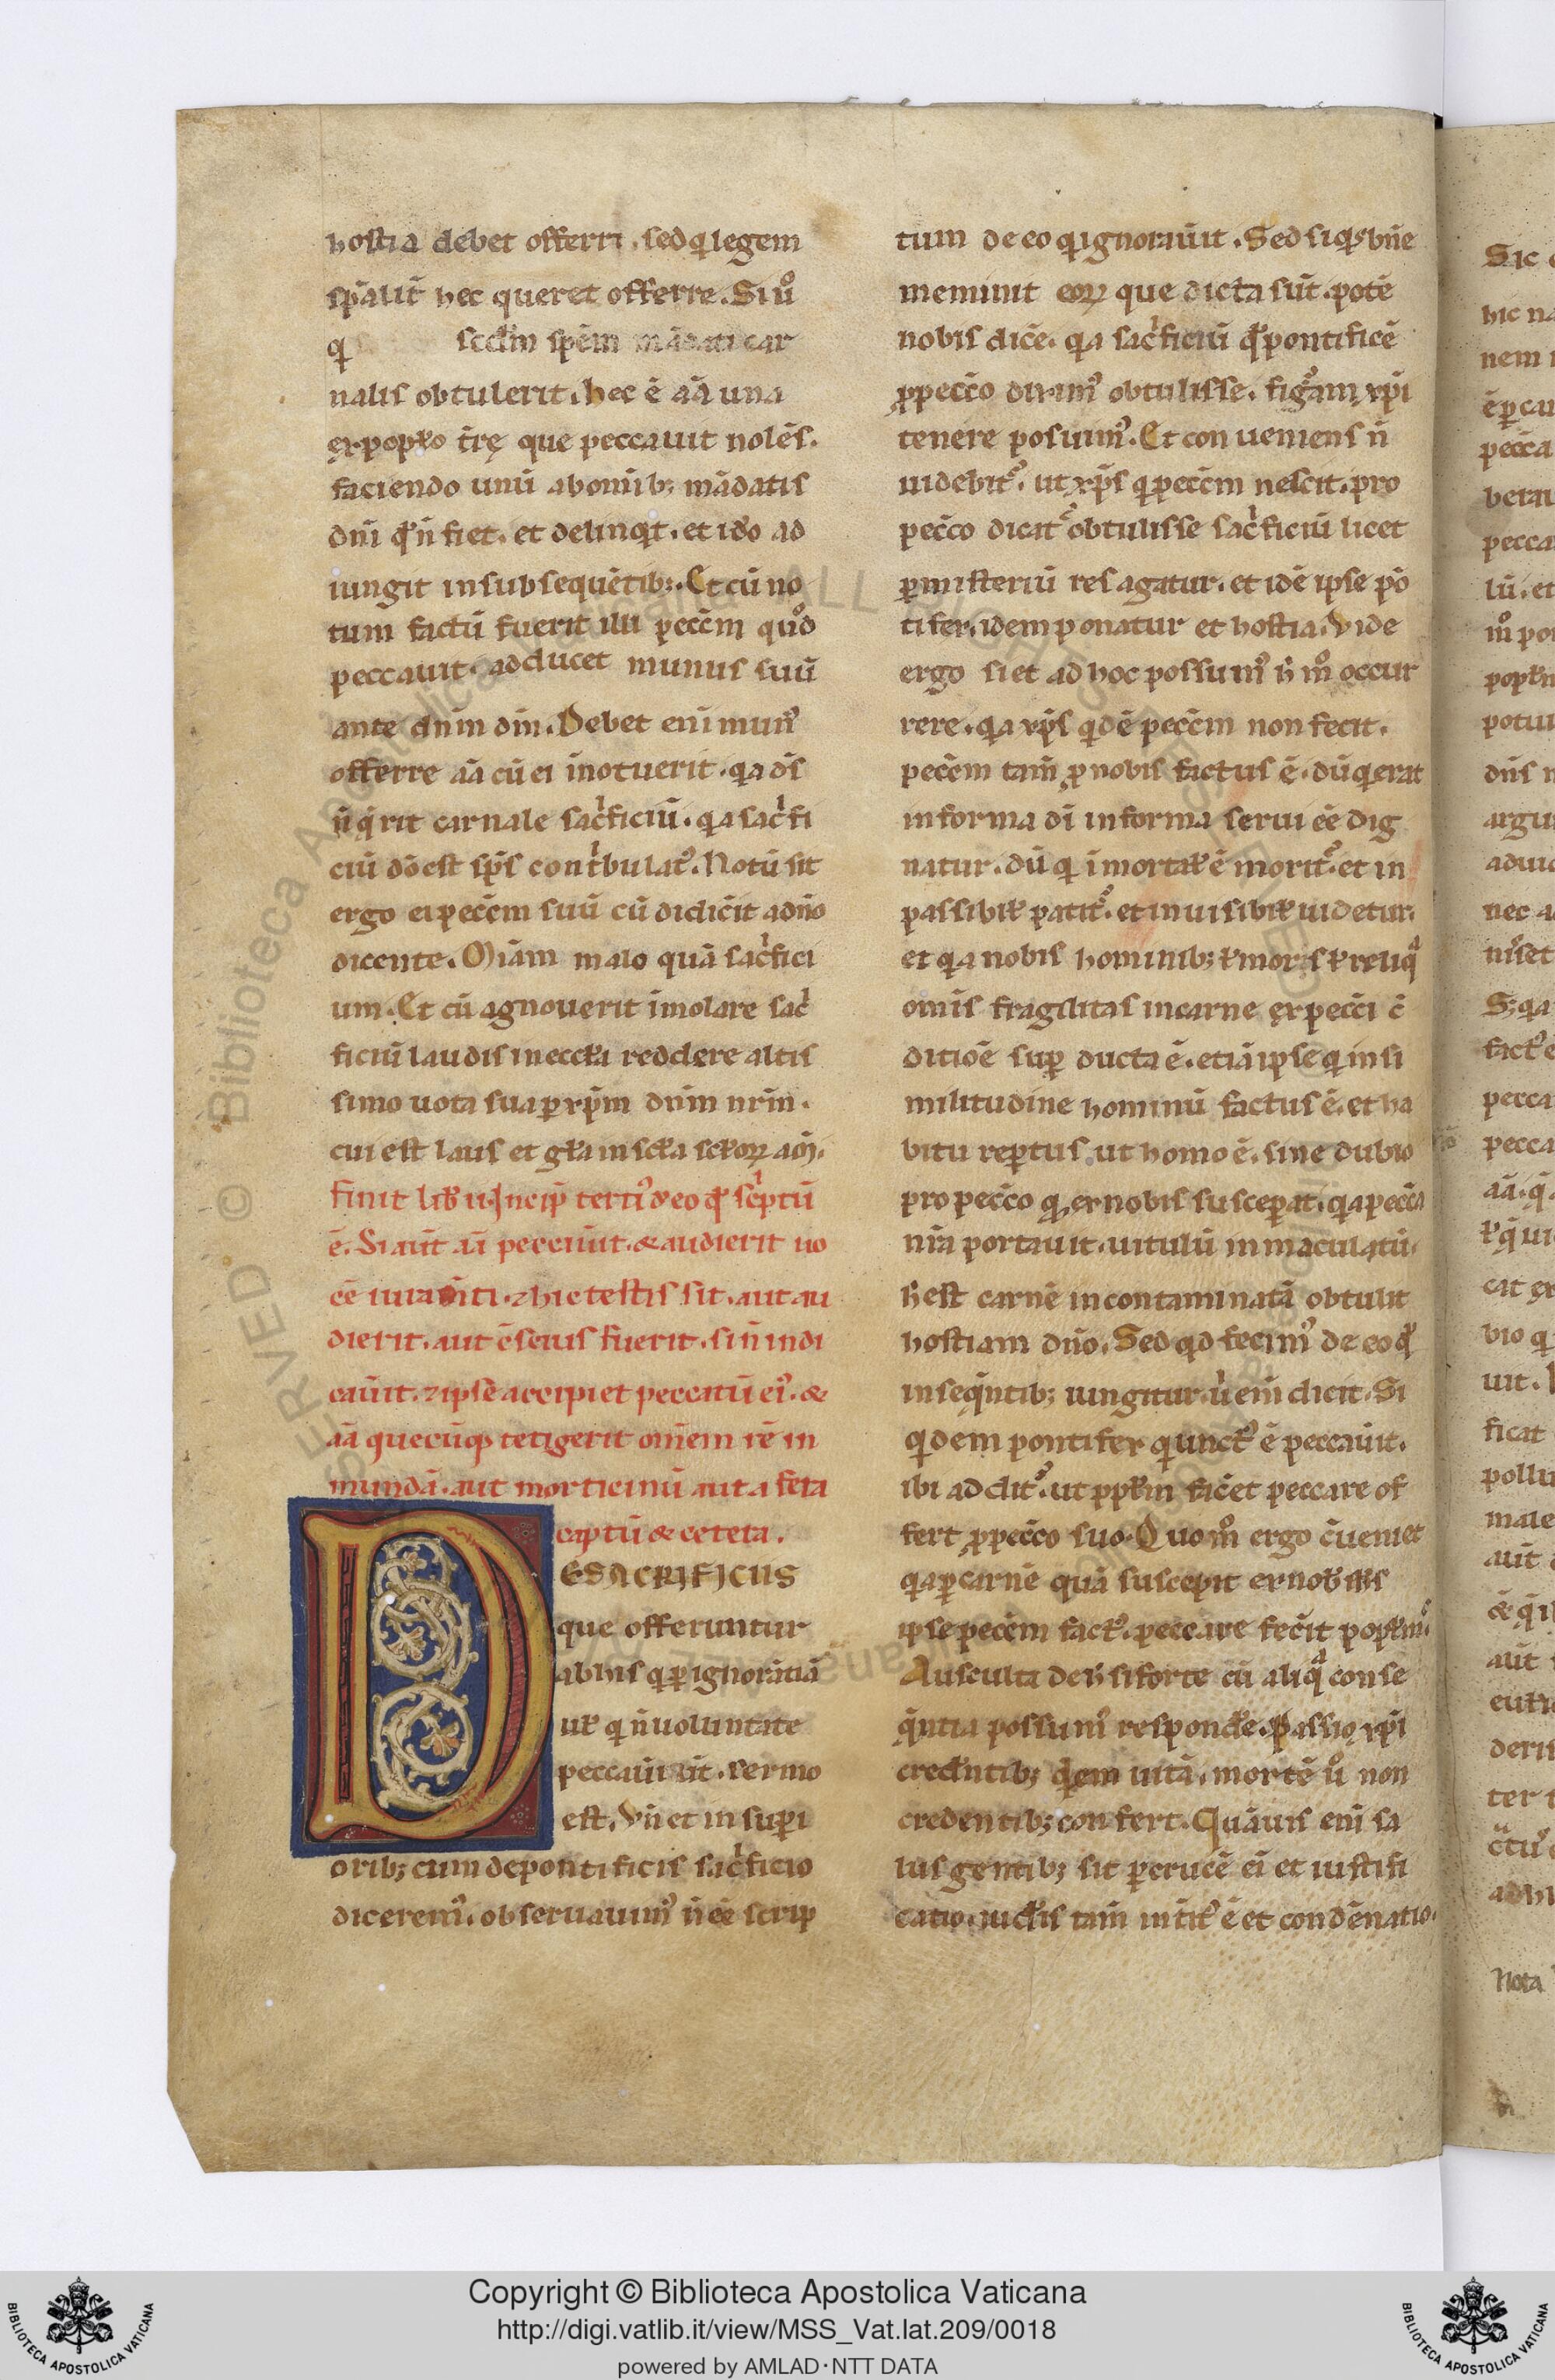 hostia debet offerri. sed q̇ legem
sp̄aliť hec queret offerre. Si u̾o
qͥ scd̄m sp̄em mādati car
nalis obtulerit. hec ē aīa una
ex pop̄lo t̄rę que peccauit nolēs.
faciendo unū ab omīb; mādatis
dn̄i qď n̄ fiet. et delinq̇t. et iďo ad
iungit in subsequētib;. Et cū no
tum factū fuerit illi pecc̄m quo̾d
peccauit. adducet munus suū
ante dn̄m dm̄. Debet eni munꝰ
offerre aīa cū ei inotuerit. qͥa dš
n̄ q̇rit carnale sac̾ficiū. qͥa sac̾fi
ciū do̅ est sp̄s cont̾bulatꝰ. Notū sit
ergo ei pecc̄m suū cū didic̄it a dn̄o
dicente. Mīam malo quā sac̾fici
um. Et cū agnouerit īmolare sac̾
ficiū laudis in eccľia reddere altis
simo uota sua ꝑ xp̄m dn̄m nr̄m.
cui est laus et gľa in scľa scľoꝝ am̄.
Finit lib̾ ii. Incip̄ tertiꝰ de eo qď sc̾ptū
ē. Si aūt aīa peccau̾it. & audierit uo
cē iurāti. ⁊ hic testis sit. aut au
dierit. aut c̄scius fuerit. si n̄ indi
cau̾it. ⁊ ipse accipiet peccatū eiꝰ. &
aīa quecūq; tetigerit om̄em rē in
mundā. aut morticinū aut a fera
captū & cetera.
DE SACRIFICIIS
que offeruntur
ab his q̇ ꝑ ignorātiā
uľ q̇ n̄ uoluntate
peccau̾int. sermo
est. Vn̄ et in suꝑi
orib; cum de pontificis sac̾ficio
diceremꝰ. obseruauimꝰ n̄ eē scrip
tum de eo q̇ ignorau̾it. Sed si q̇s bn̄e
meminit eoꝝ que dicta sūt. potē
nobis dic̄e. qͥa sac̾ficiū qď pontificē
ꝓ pecc̄o diximꝰ obtulisse. figu̾am xp̄i
tenere posuimꝰ. Et conueniens n̄
uidebit̾. ut xp̄s q̇ pecc̄m nescit. pro
pecc̄o dicat̾ obtulisse sac̾ficiū licet
ꝑ misteriū res agatur. et idē ipse pō
tifex. idem ponatur et hostia. Vide
ergo si et ad hoc possumꝰ h̄ mo̾ occur
rere. qͥa xp̄s q̇dē pecc̄m non fecit.
pecc̄m tam̄ ꝓ nobis factus ē. dū q̇ erat
in forma di̅ in forma serui eē dig
natur. dū q̇ īmortaľ ē morit̾. et in
passibiľ patit̾. et inuisibiľ uidetur.
et qͥa nobis hominib; uľ mors uľ reliqͣ
om̄is fragilitas in carne ex pecc̄i c̄
ditiōe suꝑ ducta ē. etiā ipse q̇ in si
militudine hominū factus ē. et ha
bitu reꝑtus ut homo ē. sine dubio
pro pecc̄o qď ex nobis susceꝑat. qͥa pecc̄a
nr̄a portauit. uitulū inmaculatū.
h̄ est carnē incontaminatā obtulit
hostiam dn̄o. Sed qd̓ fecimꝰ de eo qď
in seq̄ntib; iungitur. u̾ eni̅ dicit. Si
q̇dem pontifex q̇ unctꝰ ē peccau̾it.
ibi addit̾. ut pp̄lm fac̄et peccare of
fert ꝓ pecc̄o suo. Quom̊ ergo c̄ueniet
qͥa ꝑ carnē quā suscepit ex nobis
ipse pecc̄m factꝰ. peccare fec̄it pop̄lm.
Ausculta de h̄ si forte cū aliqͣ conse
q̄ntia possumꝰ respondēe. Passio xp̄i
cred̄ntib; q̇dem uitā. mortē u̾o non
credentib; confert. Quāuis eni̅ sa
lus gentib; sit ꝑ crucē ei̅ et iustifi
catio. iud̄eis tam̄ int̾itꝰ ē et condēnatio.
Nota
Copyright © Biblioteca Apostolica Vaticana
http://digi.vatlib.it/view/MSS_Vat.lat.209/0018
powered by AMLAD·NTT DATA